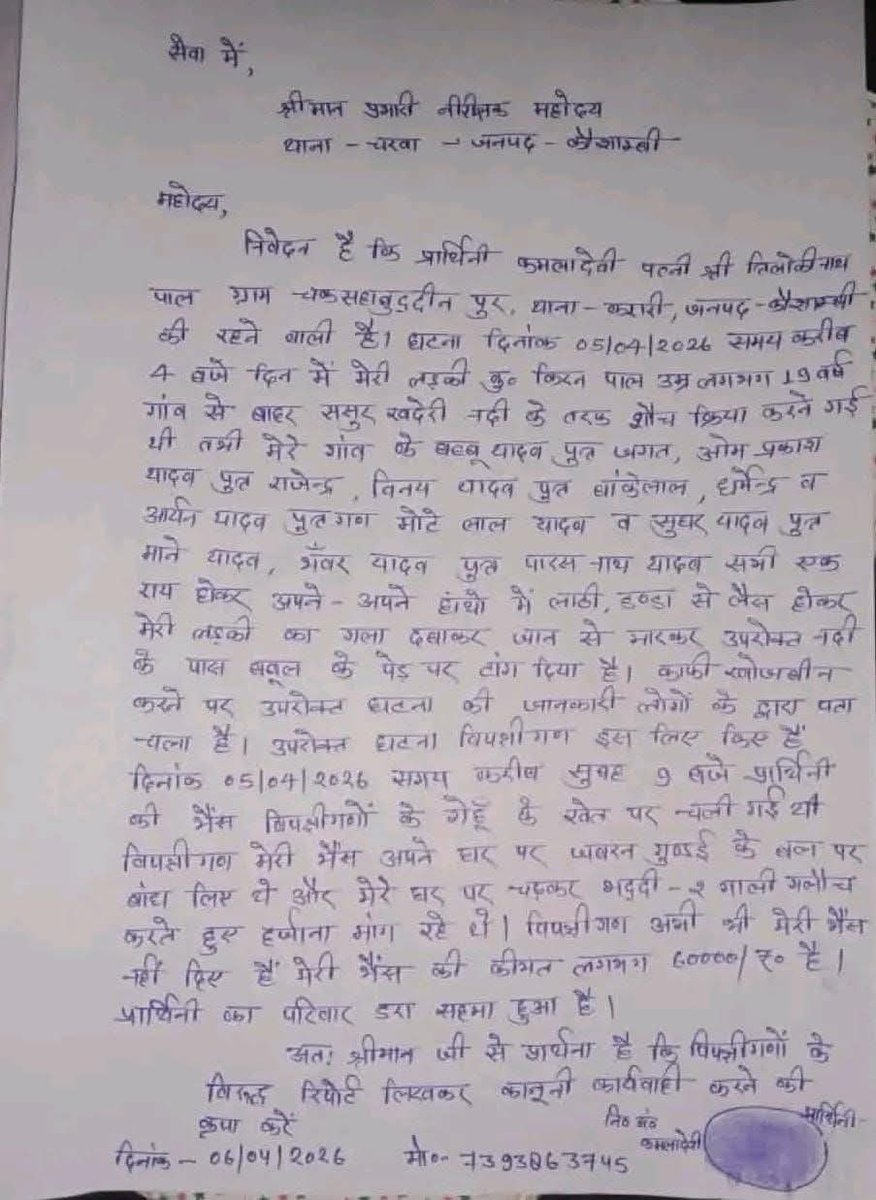 सेवा में,
श्रीमान प्रभारी निरीक्षक महोदय
थाना - चरवा - जनपद - कौशाम्बी
महोदय,
निवेदन है कि प्रार्थिनी कमलादेवी पत्नी श्री त्रिलोकीनाथ
पाल ग्राम चकसहाबुद्दीन पुर, थाना - करारी, जनपद - कौशाम्बी
की रहने वाली है। घटना दिनांक 05/04/2026 समय करीब
4 बजे दिन में मेरी लड़की कु० किरन पाल उम्र लगभग 19 वर्ष
गांव से बाहर ससुर खदेरी नदी के तरफ शौच क्रिया करने गई
थी तभी मेरे गांव के बब्बू यादव पुत्र जगत, ओम प्रकाश
यादव पुत्र राजेन्द्र, विनय यादव पुत्र बांकेलाल, धर्मेन्द्र व
आर्यन यादव पुत्रगण मोटे लाल यादव व सुघर यादव पुत्र
माने यादव, भँवर यादव पुत्र पारस नाथ यादव सभी एक
राय होकर अपने - अपने हांथो में लाठी, डण्डा से लैस होकर
मेरी लड़की का गला दबाकर जान से मारकर उपरोक्त नदी
के पास बबूल के पेड़ पर टांग दिया है। काफी खोजबीन
करने पर उपरोक्त घटना की जानकारी लोगों के द्वारा पता
चला है। उपरोक्त घटना विपक्षीगण इस लिए किए हैं
दिनांक 05/04/2026 समय करीब सुबह 9 बजे प्रार्थिनी
की भैंस विपक्षीगणों के गेहूँ के खेत पर चली गई थी
विपक्षीगण मेरी भैंस अपने घर पर जबरन गुण्डई के बल पर
बांध लिए थे और मेरे घर पर चढ़कर भद्दी - २ गाली गलौच
करते हुए हर्जाना मांग रहे थे। विपक्षीगण अभी भी मेरी भैंस
नहीं दिए हैं मेरी भैंस की कीमत लगभग 60000/ रु० है।
प्रार्थिनी का परिवार डरा सहमा हुआ है।
अतः श्रीमान जी से प्रार्थना है कि विपक्षीगणों के
विरूद्ध रिपोर्ट लिखकर कानूनी कार्यवाही करने की
कृपा करें
प्रार्थिनी
नि० अं०
कमलादेवी
दिनांक - 06/04/2026 मो०- 7393863745